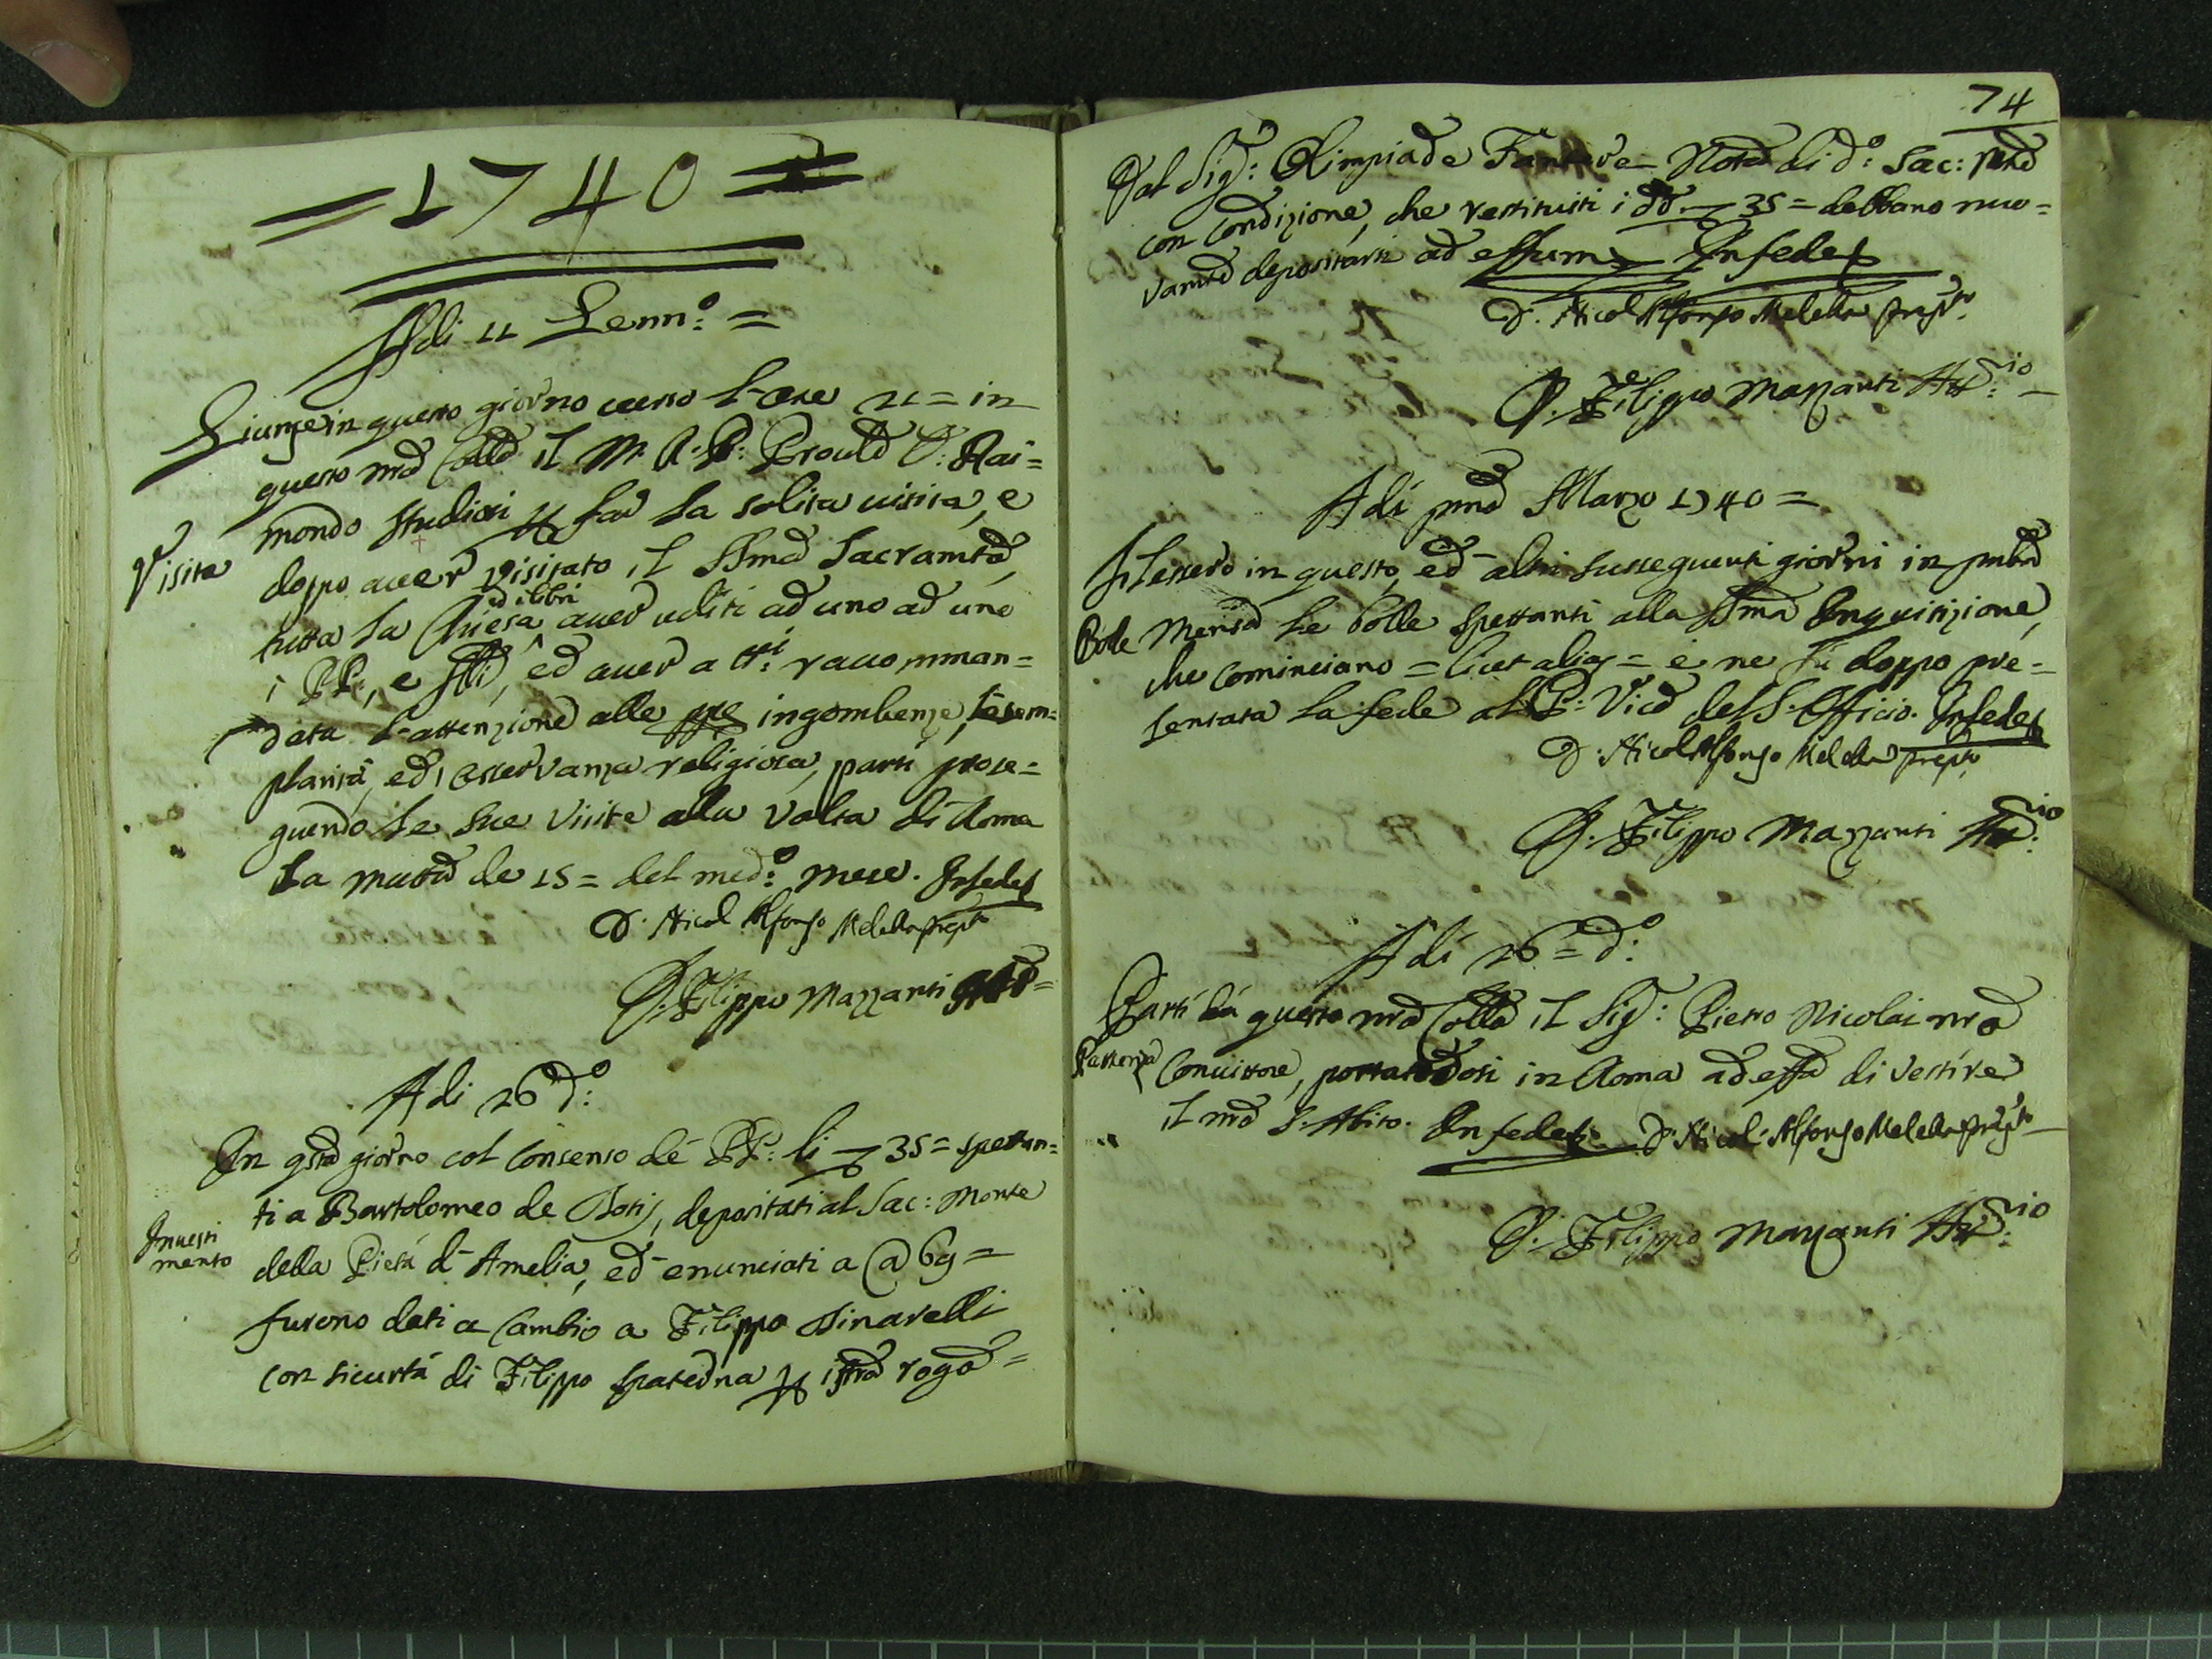 = 1740 =
Adi 11 Genn:º =
Giunse in questo giorno verso l'ore 21 = in
questo nrõ Collº il M. R. P. Provlẽ D. Rai=
mondo Studiosi per far la solita visita, e
Visita
doppo aver visitato il SSmõ Sacramtõ,
ed i libri
tutta la Chiesa aver uditi ad uno ad uno
i PP., e flli, ed aver a tti: raccomman=
data l'attenzione alle ppe ingombenze, l'esem=
plarità, ed osservanza religiosa, partì prose=
guendo le sue visite alla volta di Roma
la mattã de 15 = del medº: mese. In fede
D. Nicol Alfonso Melella prepto
D. Filippo Mazzanti
Adi 26 dº:
In qstõ giorno col consenso de PP. li 35 = spettan=
ti a Bartolomeo de Dotis, depositati al Sac: Monte
Investi
mento
della Pietà d'Amelia, ed enunciati a @ 69 =
furono dati a Cambio a Filippo Sinarelli
con sicurtà di Filippo Spatedna per istrõ rogº =
74
Dal Sigr: Olimpiade Notº di dº: Sac:
con condizione, che restituiti i dd. 35 = debbano nuo=
vamtẽ depositarsi ad effum In fede
D. Nicol Alfonso Melella prepto
D. Filippo Mazzanti Attrio
Adi pmõ Marzo 1740 =
Si lessero in questo, ed altri susseguenti giorni in pubcã
Bolle
Mensã le Bolle spettanti alla SSmã Inquisizione,
che cominciano = licet alias = e ne fù doppo pre=
sentata la fede al P. Vicº del S. Officio. In fede
D. Nicol Alfonso Melella prepto
D. Filippo Mazzanti Attrio
Adi 26 = dº:
Partì da questo nrõ Collº il Sigr: Pietro Nicolai nrõ
Partenza
Convittore, portandosi in Roma ad effº di vestire
il nrõ S. Abito. In fede D. Nicol: Alfonso Melella prepto
D. Filippo Mazzanti Attrio